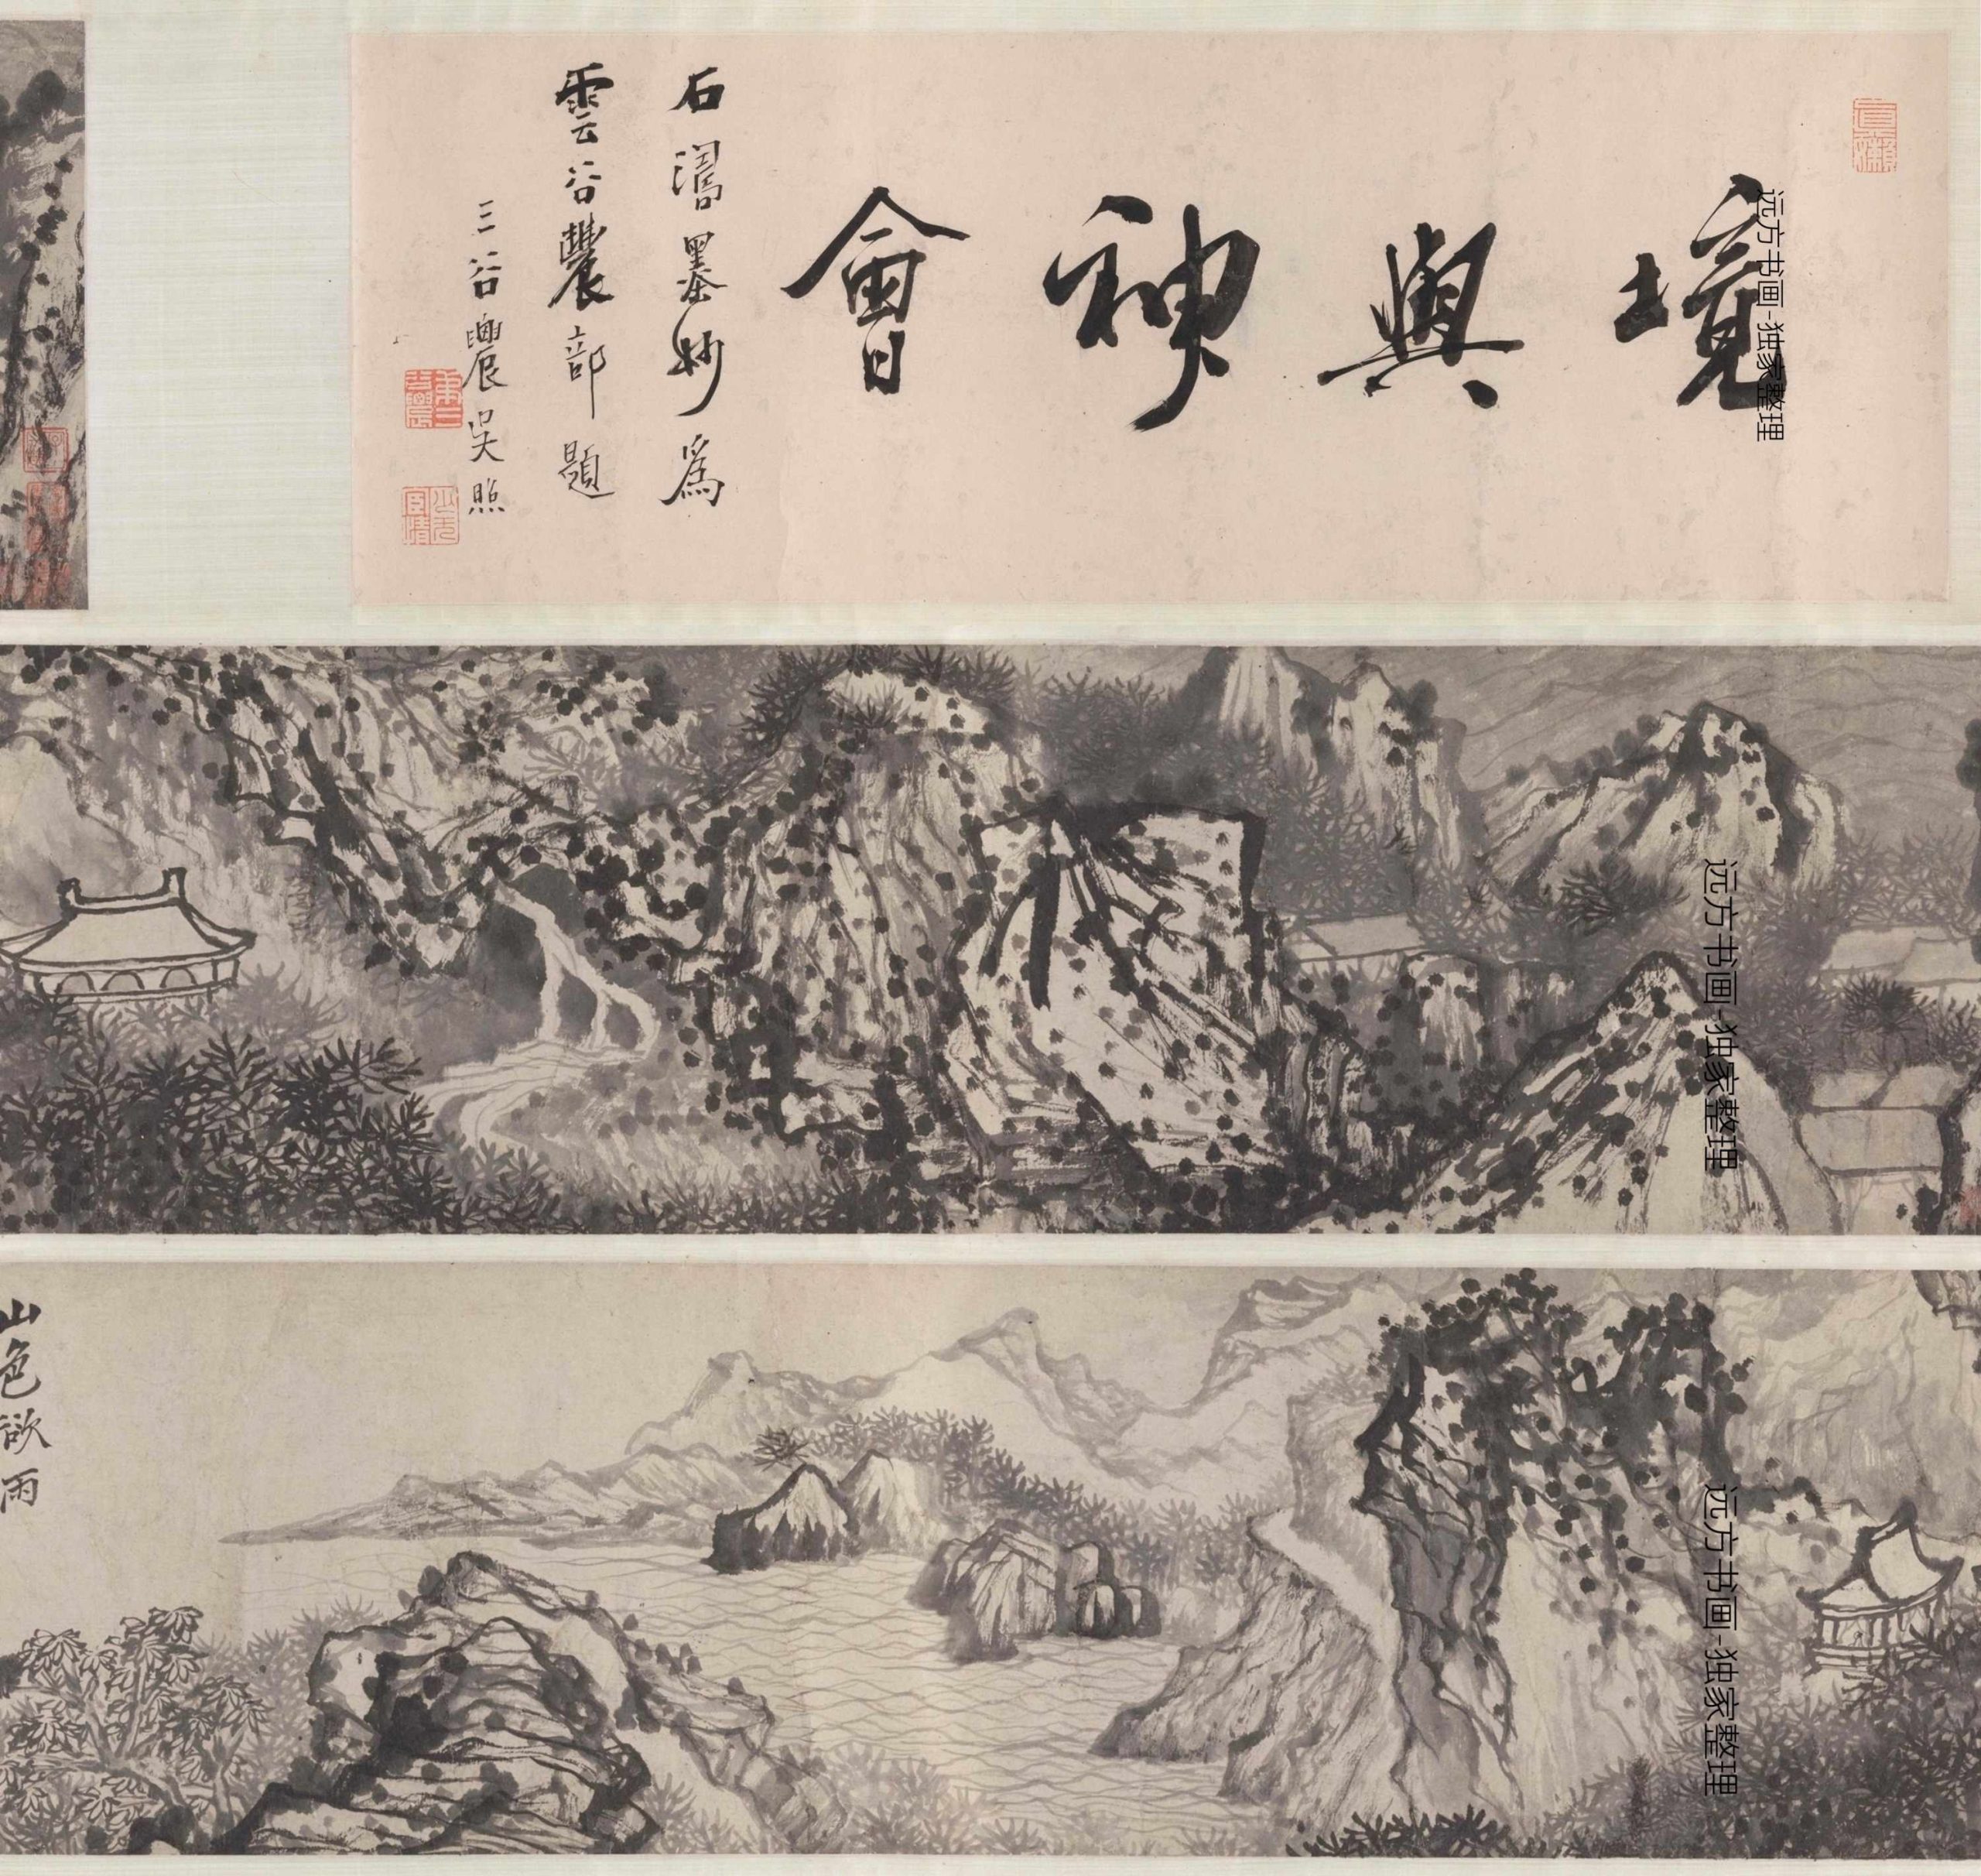 境與神會
石濤墨妙為
雲谷農部題
三谷農吳照
山色欲雨
远方书画-独家整理
远方书画-独家整理
远方书画-独家整理